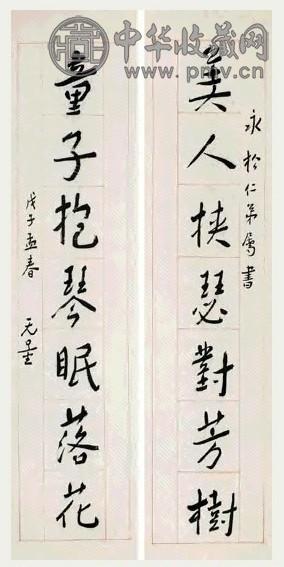 中华收藏网
www.pmv.cn
美人挟瑟對芳樹
永松仁弟屬書
童子抱琴眠落花
戊子孟春 无量